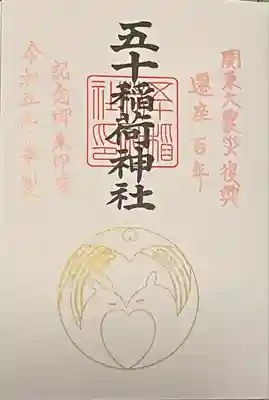 関東大震災復興
遷座百年
五十稲荷神社
記念御朱印
令和五年